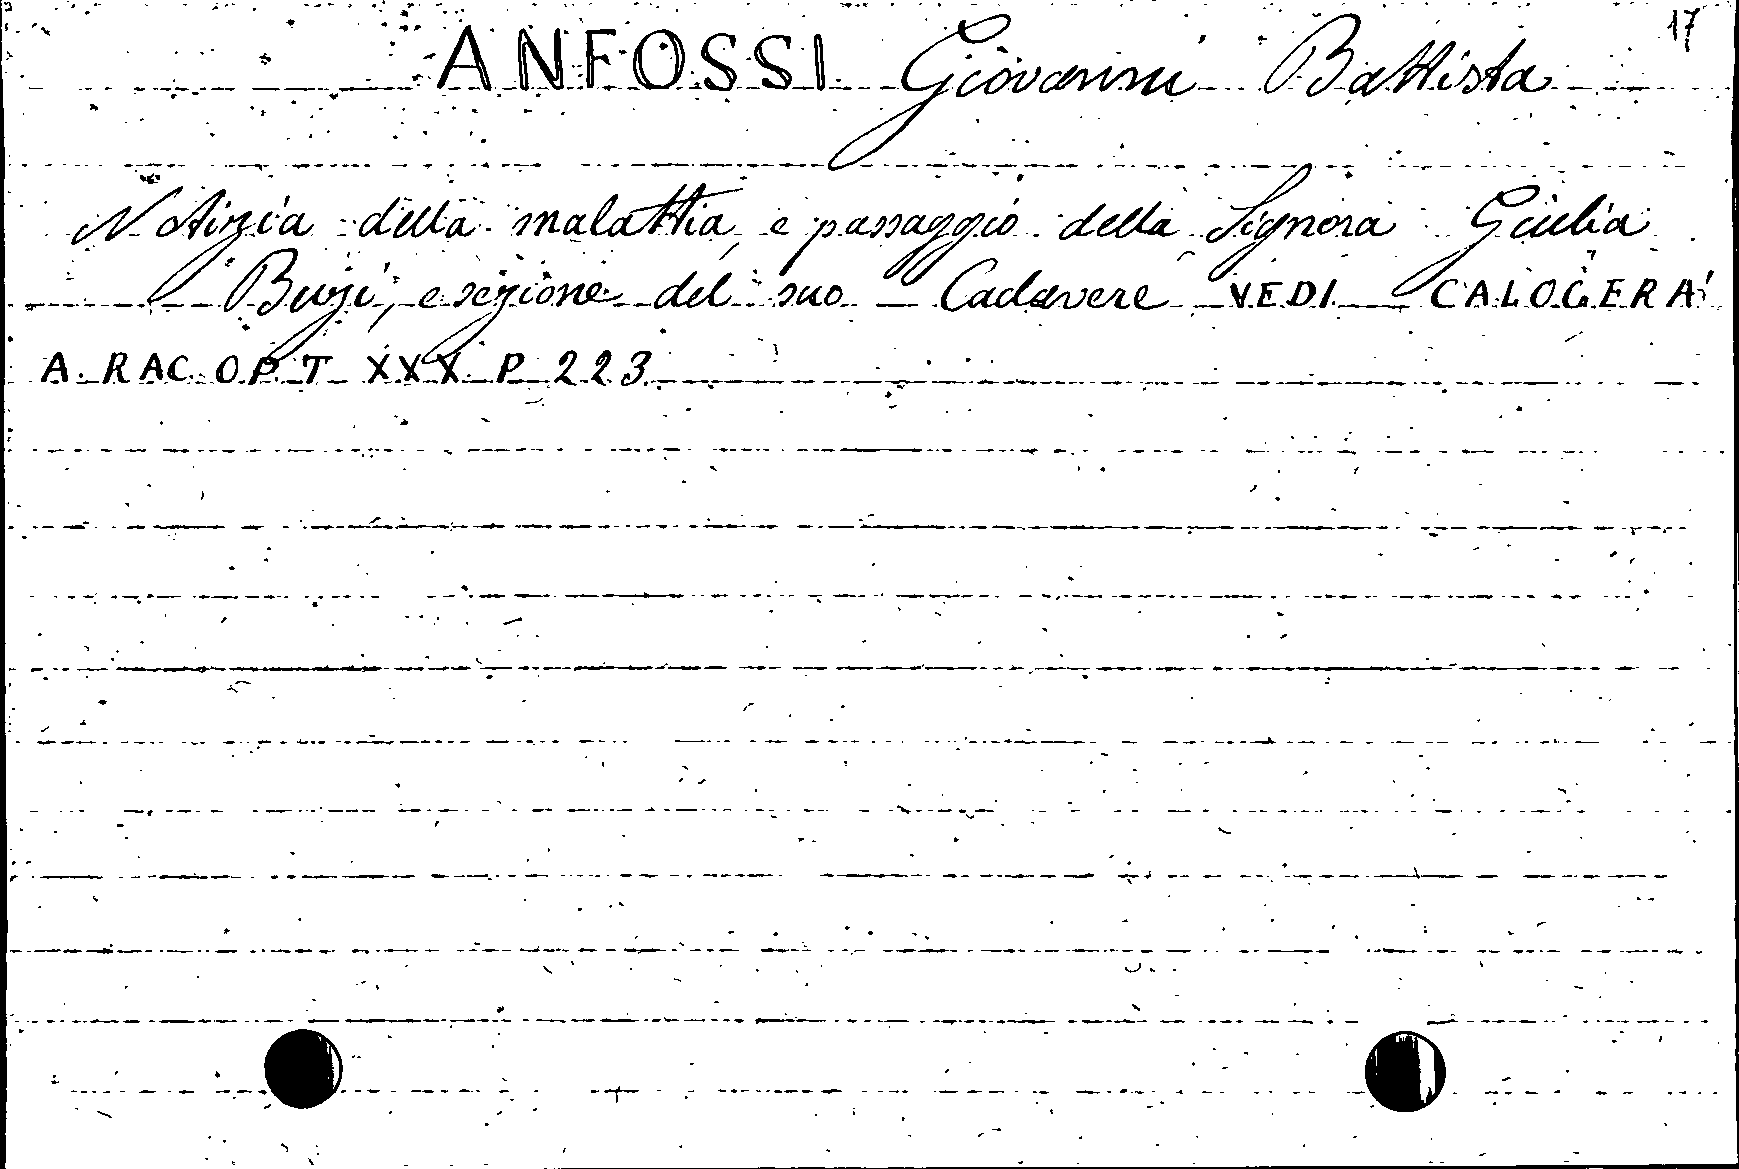 17
ANFOSSI Giovanni Battista
Notizia della malattia, e passaggio della Signora Giulia
Buzi, e sezione del suo Cadavere VEDI CALOGERÀ
A. RAC. OP. T XXX P 223